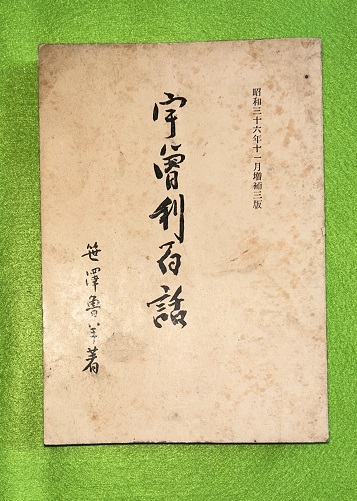 昭和三十六年十一月増補三版
宇曽利百話
笹澤魯羊著